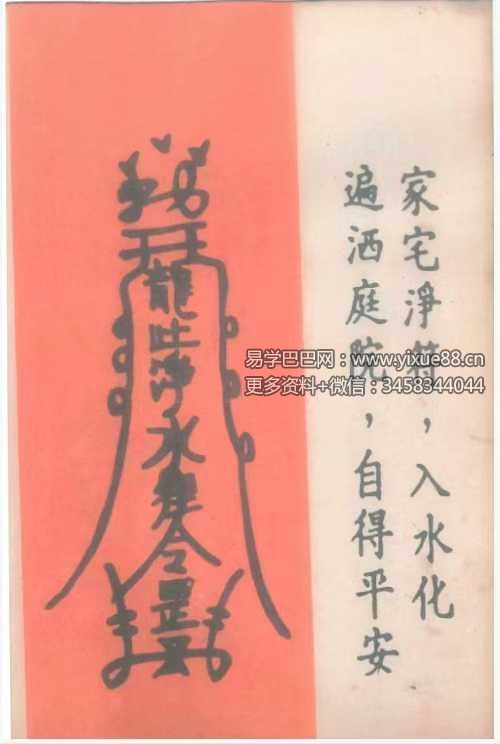 家宅淨符，入水化
遍洒庭院，自得平安
龍吐淨水
令
易学巴巴网：www.yixue88.cn
更多资料+微信：3458344044